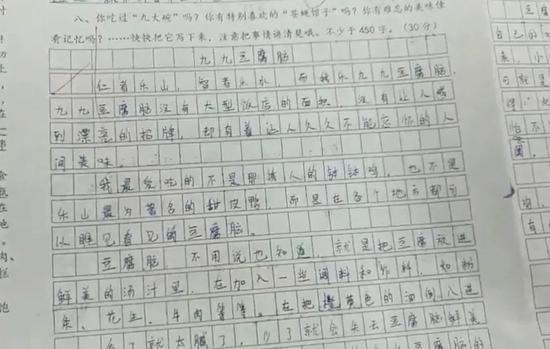 八、你吃过“九大碗”吗？你有特别喜欢的“苍蝇馆子”吗？你有难忘的美味佳
肴记忆吗？……快快把它写下来，注意把事情讲清楚哦。不少于450字。（30分）
九九豆腐脑
仁者乐山，智者乐水，而我乐九九豆腐脑
九九豆腐脑没有大型饭店的面积，没有让人感
到漂亮的招牌，却有着让人久久不能忘怀的人
间美味。
我最爱吃的不是那诱人的钵钵鸡，也不是
乐山最为著名的甜皮鸭，而是在各个地方都可
以随见看见的豆腐脑。
豆腐脑，不用说也知道，就是把豆腐放进
鲜美的汤汁里，在加入一些调料和作料，如粉
条、花生、牛肉等等。在把橙黄色的油倒入进
多了就太腻了，少了就会失去豆腐脑鲜美